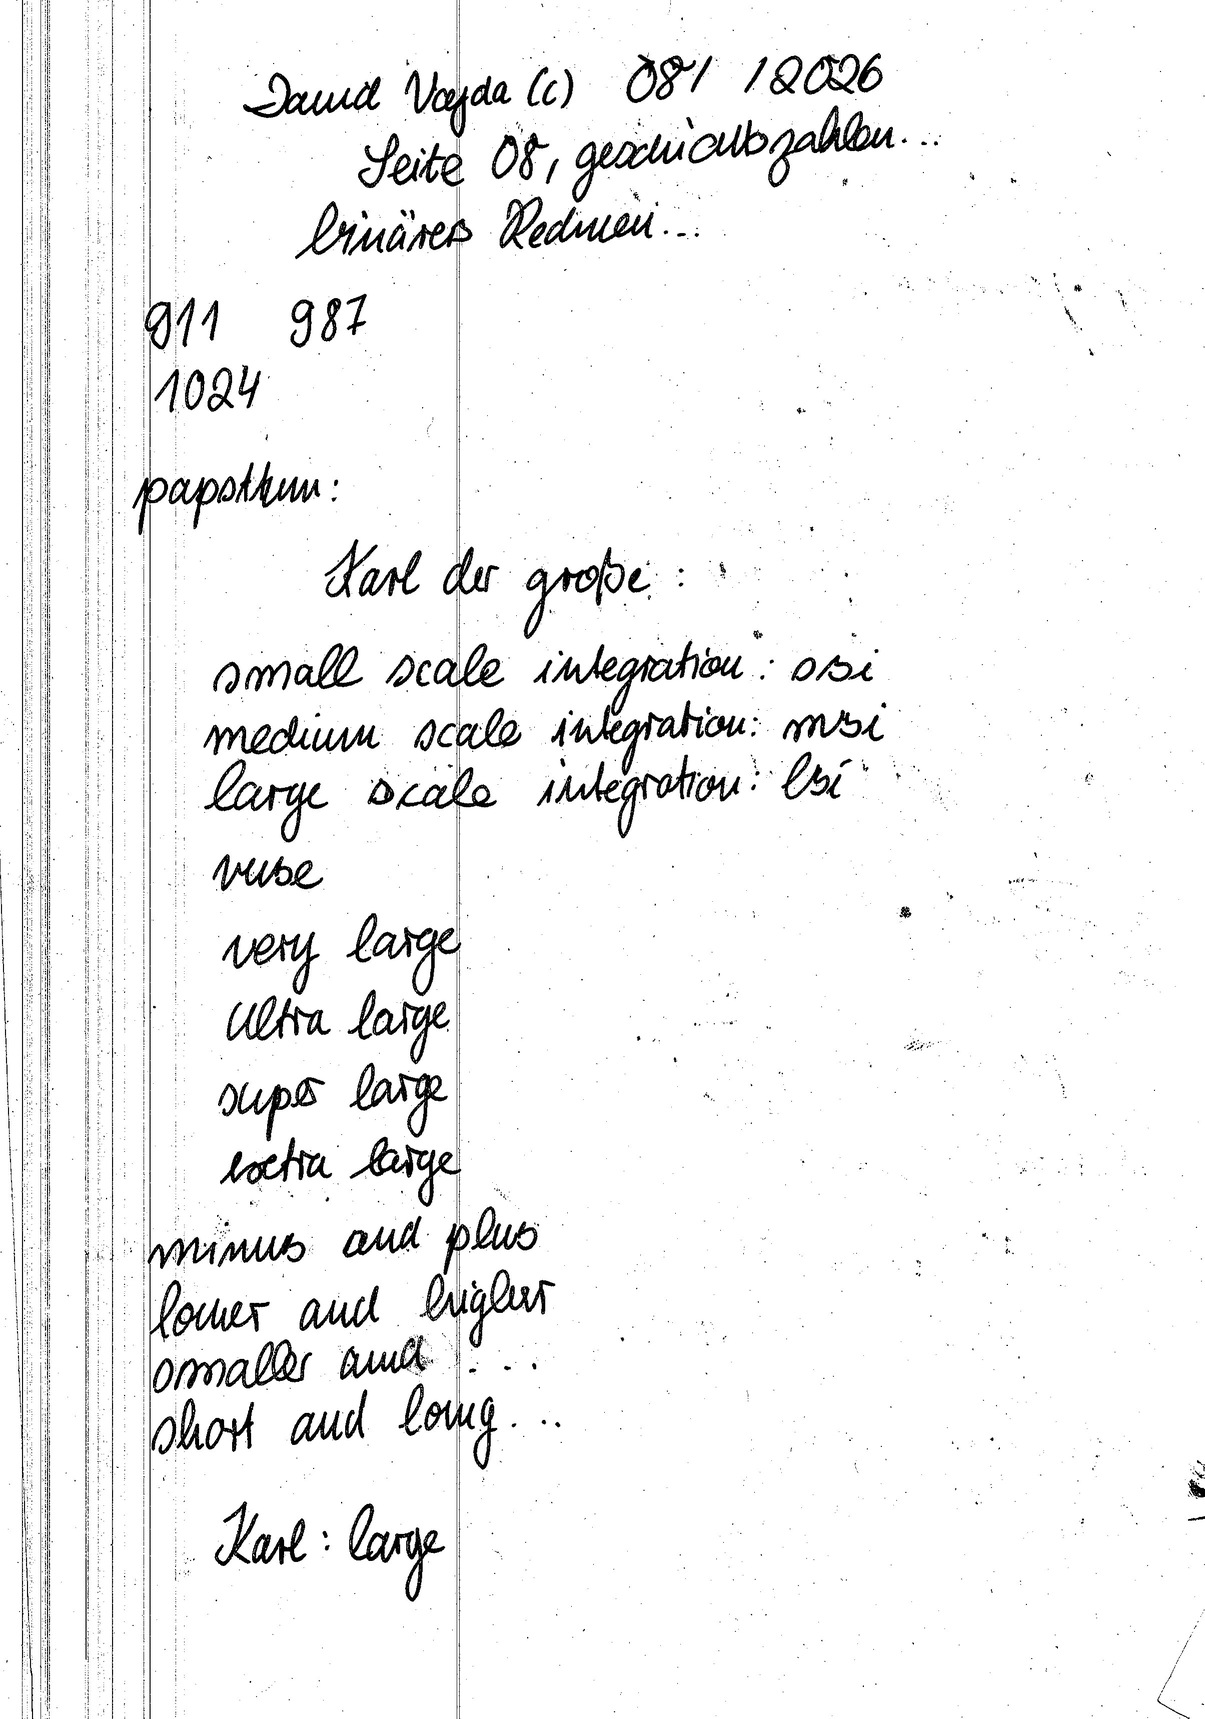 David Vajda (c) 08/ /2026
Seite 08, geschichtszahlen...
binäres Rechnen...
911 987
1024
papsttum:
Karl der große:
small scale integration: ssi
medium scale integration: msi
large scale integration: lsi
vuse
very large
Ultra large
super large
extra large
minus and plus
lower and higher
smaller and ...
short and long...
Karl: large